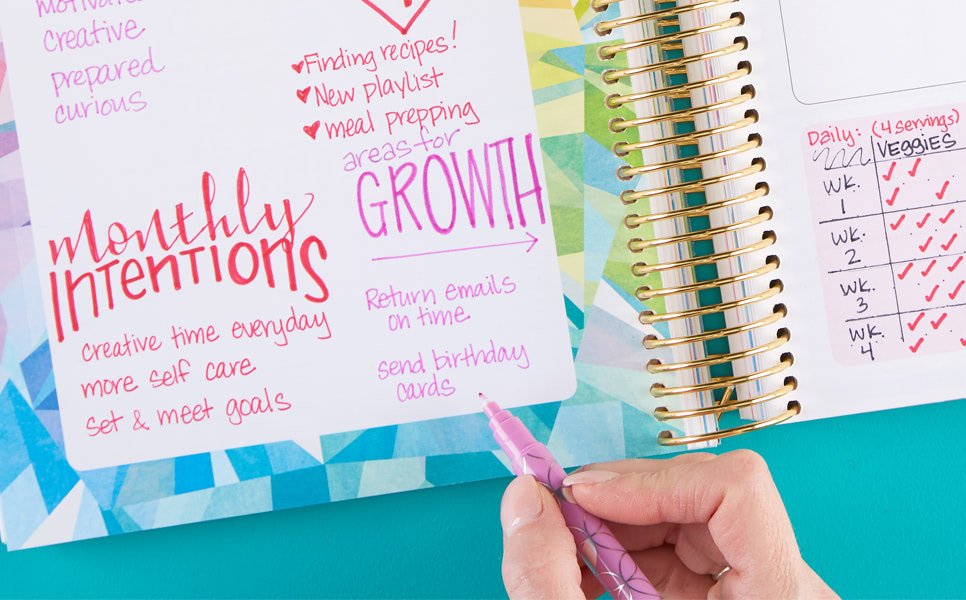 motivated
creative
prepared
curious
Finding recipes!
New playlist
meal prepping
areas for
GROWTH
monthly
INTENTIONS
creative time everyday
more self care
set & meet goals
Return emails
on time
send birthday
cards
Daily: (4 servings)
VEGGIES
WK.
1
WK.
2
WK.
3
WK.
4